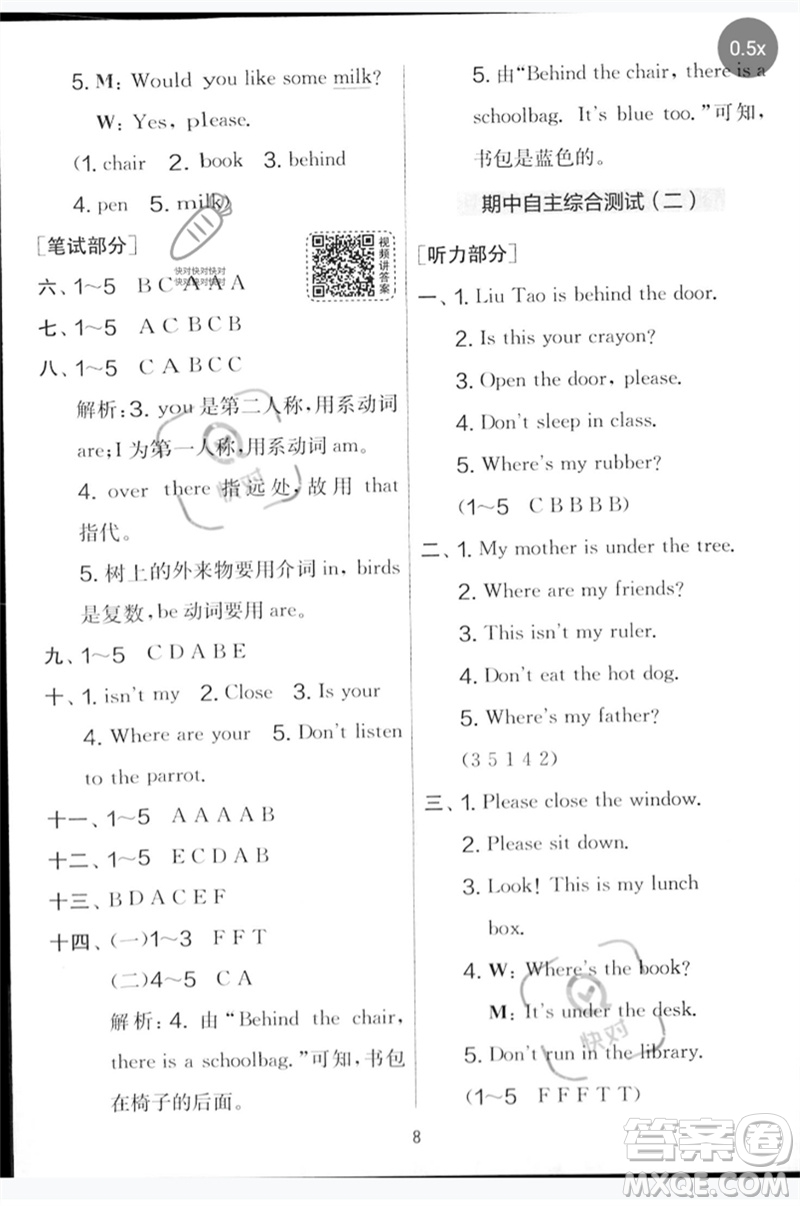 0.5x
5. M: Would you like some milk?
W: Yes, please.
(1. chair 2. book 3. behind
4. pen 5. milk)
[笔试部分]
快对快对快对
快对快对快对
视频讲答案
六、1～5 B C A A A
七、1～5 A C B C B
八、1～5 C A B C C
解析:3. you 是第二人称,用系动词
are;I 为第一人称,用系动词 am。
4. over there 指远处,故用 that
指代。
5. 树上的外来物要用介词 in, birds
是复数, be 动词要用 are。
九、1～5 C D A B E
十、1. isn't my 2. Close 3. Is your
4. Where are your 5. Don't listen
to the parrot.
十一、1～5 A A A A B
十二、1～5 E C D A B
十三、B D A C E F
十四、(一)1～3 F F T
(二)4～5 C A
解析:4. 由 “Behind the chair,
there is a schoolbag.”可知,书包
在椅子的后面。
5. 由“Behind the chair, there is a
schoolbag. It's blue too.”可知,
书包是蓝色的。
期中自主综合测试(二)
[听力部分]
一、1. Liu Tao is behind the door.
2. Is this your crayon?
3. Open the door, please.
4. Don't sleep in class.
5. Where's my rubber?
(1～5 C B B B B)
二、1. My mother is under the tree.
2. Where are my friends?
3. This isn't my ruler.
4. Don't eat the hot dog.
5. Where's my father?
(3 5 1 4 2)
三、1. Please close the window.
2. Please sit down.
3. Look! This is my lunch
box.
4. W: Where's the book?
M: It's under the desk.
5. Don't run in the library.
(1～5 F F F T T)
快对
快对
8
答案卷
MXQE.COM